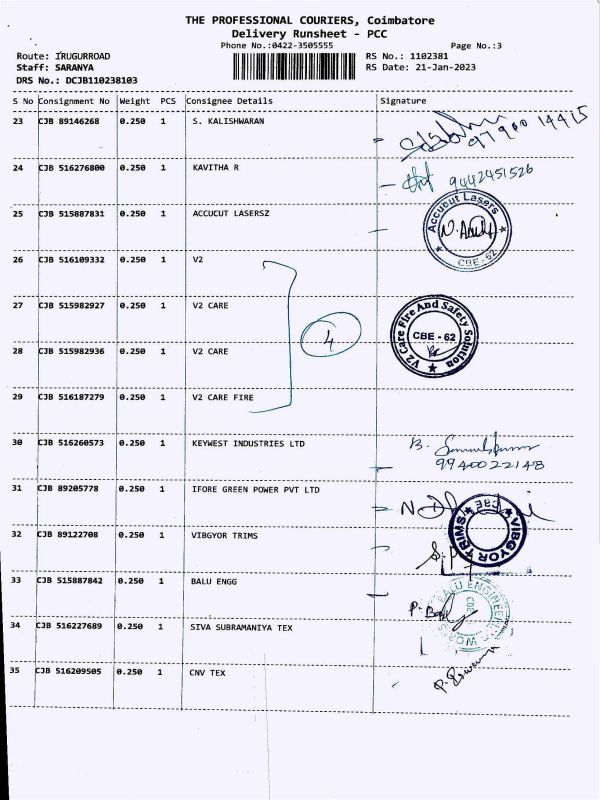 THE PROFESSIONAL COURIERS, Coimbatore
Delivery Runsheet - PCC
Phone No.:0422-3505555 Page No.:3
Route: IRUGURROAD RS No.: 1102381
Staff: SARANYA RS Date: 21-Jan-2023
DRS No.: DCJB110238103
S No Consignment No Weight PCS Consignee Details Signature
23 CJB 89146268 0.250 1 S. KALISHWARAN
9790014415
24 CJB 516276800 0.250 1 KAVITHA R
9442451526
25 CJB 515887831 0.250 1 ACCUCUT LASERSZ
Accucut Lasers
CBE - 62
26 CJB 516109332 0.250 1 V2
27 CJB 515982927 0.250 1 V2 CARE
V2 Care Fire And Safety Solution
CBE - 62
4
28 CJB 515982936 0.250 1 V2 CARE
29 CJB 516187279 0.250 1 V2 CARE FIRE
30 CJB 516260573 0.250 1 KEYWEST INDUSTRIES LTD
9940022148
31 CJB 89205778 0.250 1 IFORE GREEN POWER PVT LTD
32 CJB 89122708 0.250 1 VIBGYOR TRIMS
VIBGYOR TRIMS
CBE
33 CJB 515887842 0.250 1 BALU ENGG
34 CJB 516227689 0.250 1 SIVA SUBRAMANIYA TEX
35 CJB 516209505 0.250 1 CNV TEX